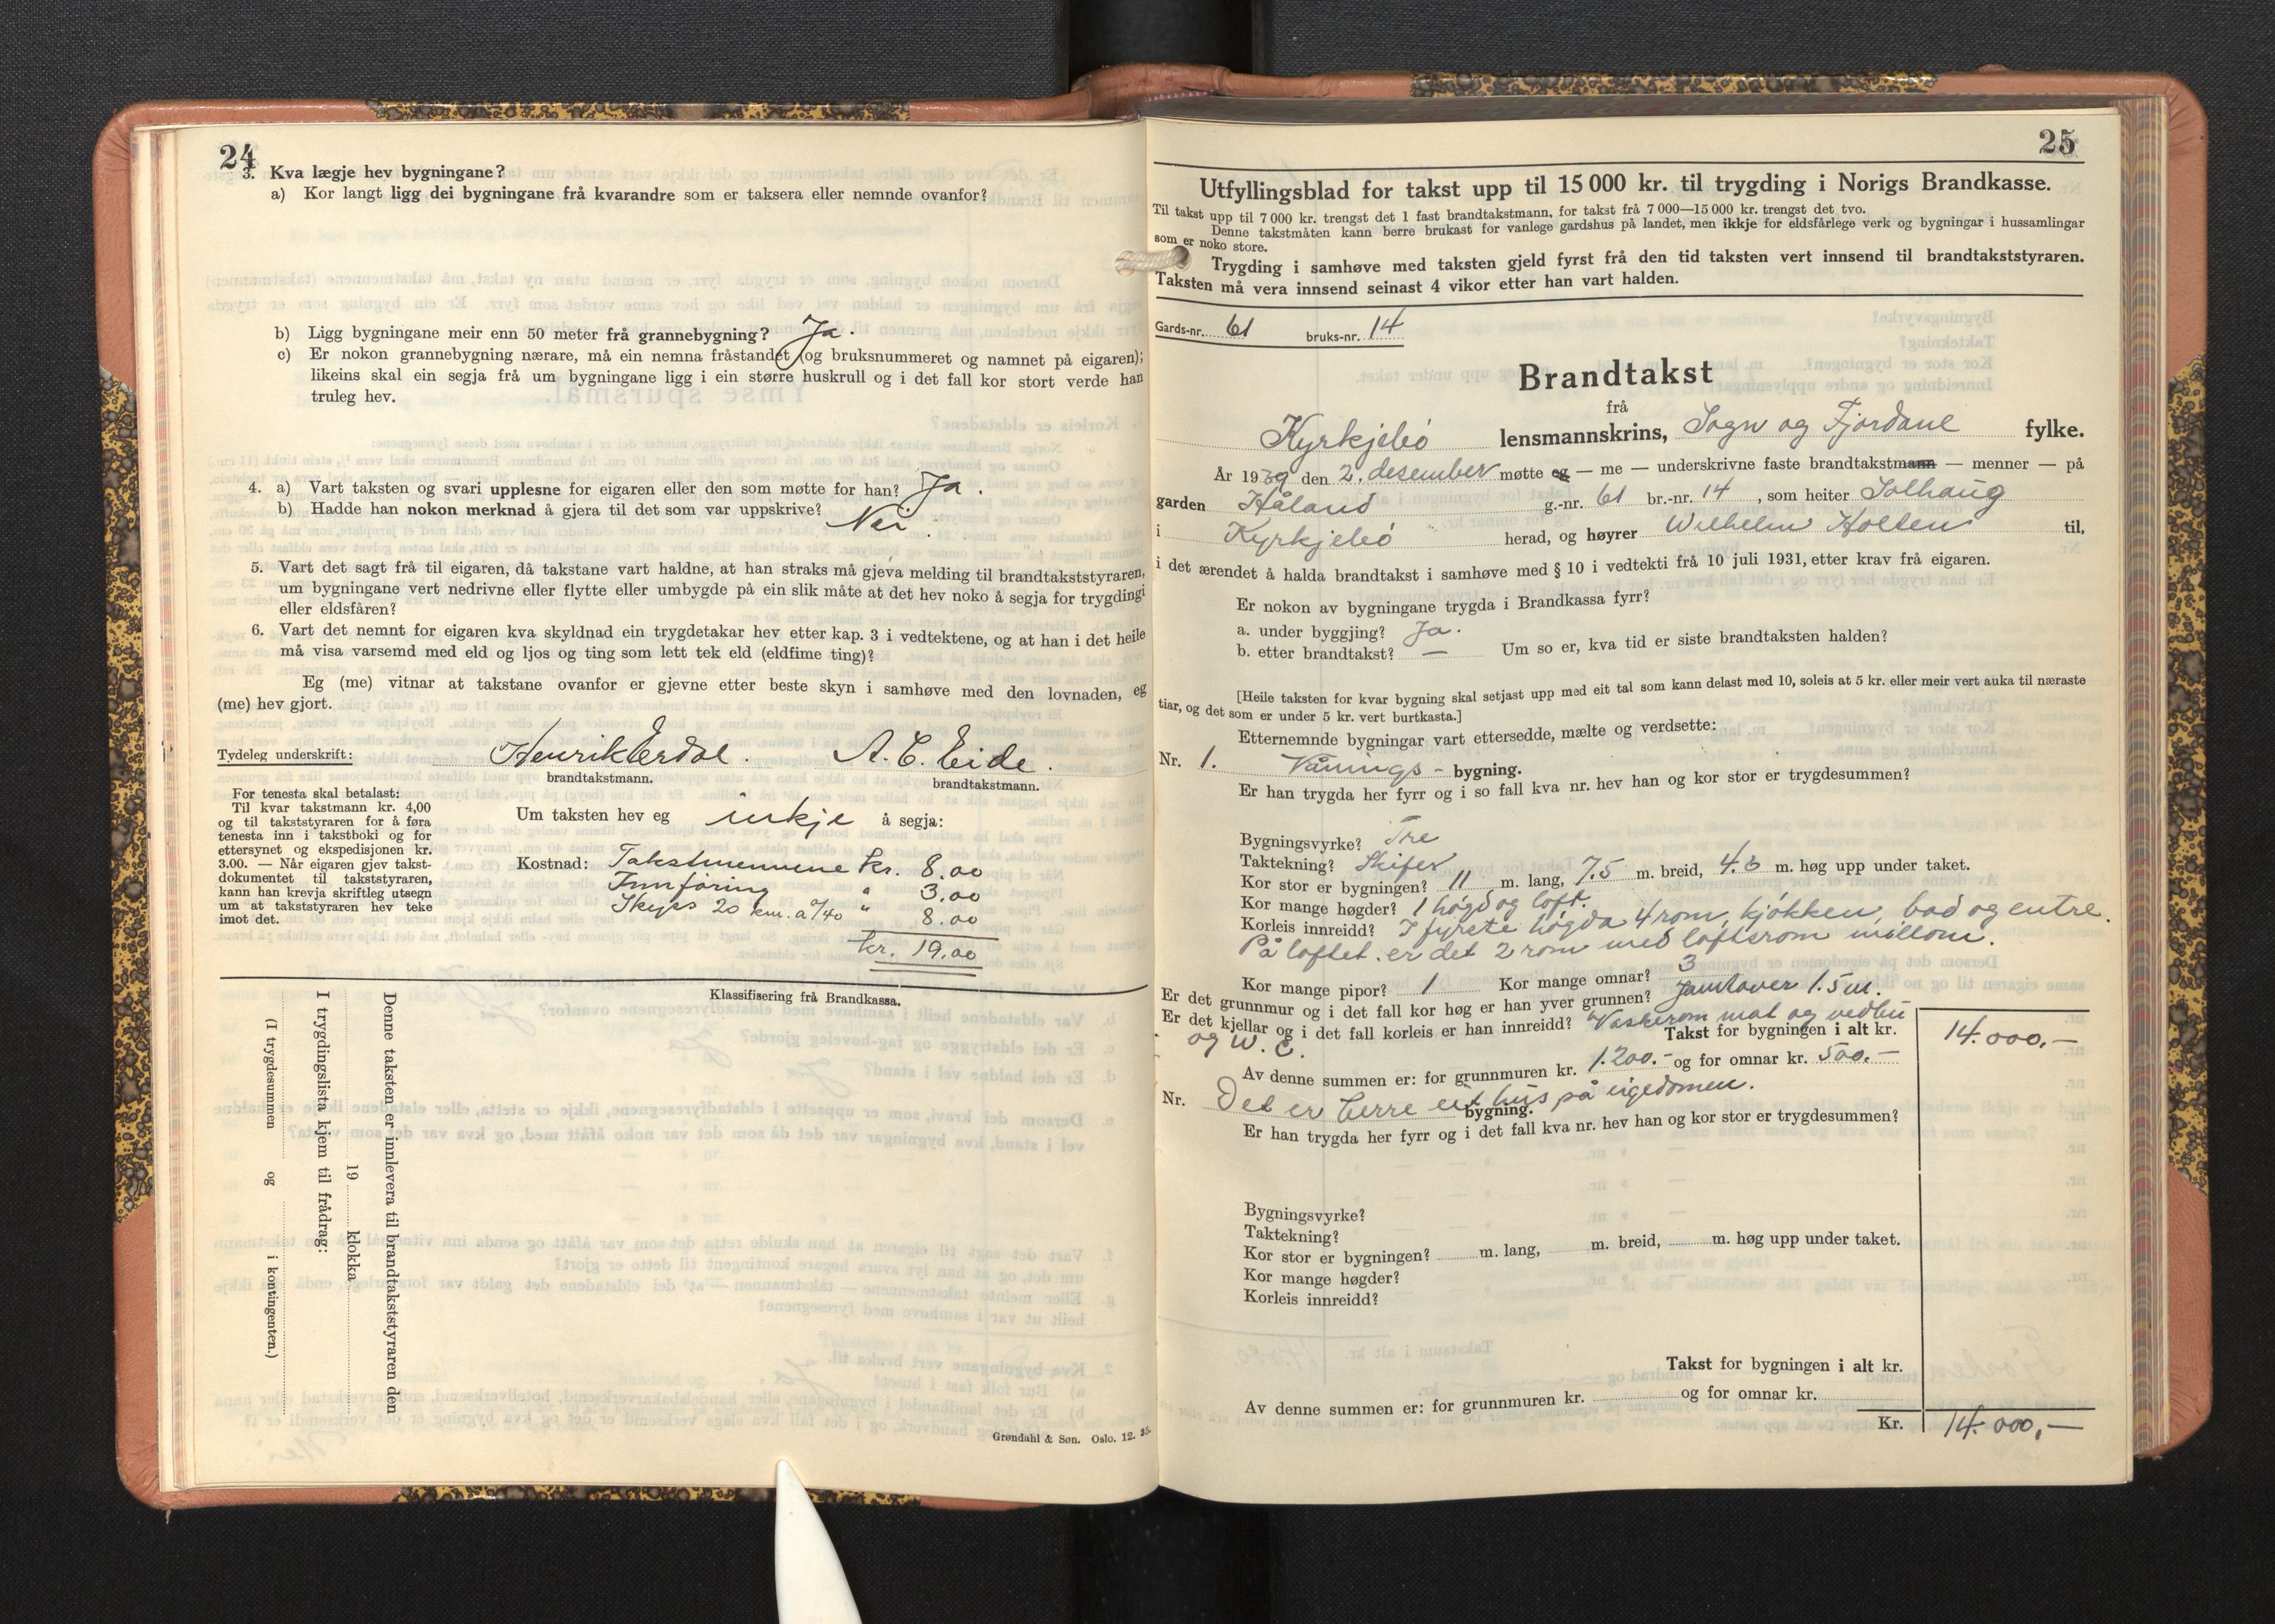 24
3. Kva lægje hev bygningane?
a) Kor langt ligg dei bygningane frå kvarandre som er taksera eller nemnde ovanfor?
b) Ligg bygningane meir enn 50 meter frå grannebygning? Ja.
c) Er nokon grannebygning nærare, må ein nemna fråstandet (og bruksnummeret og namnet på eigaren);
likeins skal ein segja frå um bygningane ligg i ein større huskrull og i det fall kor stort verde han
truleg hev.
4. a) Vart taksten og svari upplesne for eigaren eller den som møtte for han? Ja.
b) Hadde han nokon merknad å gjera til det som var uppskrive? Nei.
5. Vart det sagt frå til eigaren, då takstane vart haldne, at han straks må gjeva melding til brandtakststyraren,
um bygningane vert nedrivne eller flytte eller umbygde på ein slik måte at det hev noko å segja for trygdingi
eller eldsfåren?
6. Vart det nemnt for eigaren kva skyldnad ein trygdetakar hev etter kap. 3 i vedtektene, og at han i det heile
må visa varsemd med eld og ljos og ting som lett tek eld (eldfime ting)?
Eg (me) vitnar at takstane ovanfor er gjevne etter beste skyn i samhøve med den lovnaden, eg
(me) hev gjort.
Tydeleg underskrift: Henrik Erdal. A. C. Eide.
brandtakstmann. brandtakstmann.
For tenesta skal betalast:
Til kvar takstmann kr. 4,00
og til takststyraren for å føra
tenesta inn i takstboki og for
ettersynet og ekspedisjonen kr.
3.00. — Når eigaren gjev takst-
dokumentet til takststyraren,
kann han krevja skriftleg utsegn
um at takststyraren hev teke
imot det.
Um taksten hev eg inkje å segja:
Kostnad: Takstmennene kr. 8.00
Innføring " 3.00
Skyss 20 km. a 0/40 " 8.00
kr. 19.00
Klassifisering frå Brandkassa.
Denne taksten er innlevera til brandtakststyraren den
19 klokka
I trygdingslista kjem til frådrag:
(I trygdesummen og i kontingenten.)
Grøndahl & Søn. Oslo. 12. 35.
25
Utfyllingsblad for takst upp til 15 000 kr. til trygding i Norigs Brandkasse.
Til takst upp til 7 000 kr. trengst det 1 fast brandtakstmann, for takst frå 7 000—15 000 kr. trengst det tvo.
Denne takstmåten kann berre brukast for vanlege gardshus på landet, men ikkje for eldsfårlege verk og bygningar i hussamlingar
som er noko store.
Trygding i samhøve med taksten gjeld fyrst frå den tid taksten vert innsend til brandtakststyraren.
Taksten må vera innsend seinast 4 vikor etter han vart halden.
Gards-nr. 61 bruks-nr. 14
Brandtakst
frå
Kyrkjebø lensmannskrins, Sogn og Fjordane fylke.
År 1939 den 2. desember møtte eg — me — underskrivne faste brandtakstmann — menner — på
garden Håland g.-nr. 61 br.-nr. 14, som heiter Solhaug
i Kyrkjebø herad, og høyrer Wilhelm Holten til,
i det ærendet å halda brandtakst i samhøve med § 10 i vedtekti frå 10 juli 1931, etter krav frå eigaren.
Er nokon av bygningane trygda i Brandkassa fyrr?
a. under byggjing? Ja.
b. etter brandtakst? — Um so er, kva tid er siste brandtaksten halden?
[Heile taksten for kvar bygning skal setjast upp med eit tal som kann delast med 10, soleis at 5 kr. eller meir vert auka til næraste
tiar, og det som er under 5 kr. vert burtkasta.]
Etternemnde bygningar vart ettersedde, mælte og verdsette:
Nr. 1. Vånings-bygning.
Er han trygda her fyrr og i so fall kva nr. hev han og kor stor er trygdesummen?
Bygningsvyrke? Tre
Taktekning? Skifer
Kor stor er bygningen? 11 m. lang, 7.5 m. breid, 4.3 m. høg upp under taket.
Kor mange høgder? 1 høgd og loft.
Korleis innreidd? I fyrste høgda 4 rom, kjøkken, bad og entre.
På loftet er det 2 rom med loftsrom millom.
Kor mange pipor? 1 Kor mange omnar? 3
Er det grunnmur og i det fall kor høg er han yver grunnen? Jamtover 1.5 m.
Er det kjellar og i det fall korleis er han innreidd? Vaskerom mat og vedbu
og W. C. Takst for bygningen i alt kr. 14.000.—
Av denne summen er: for grunnmuren kr. 1.200.- og for omnar kr. 500.—
Nr. Det er berre eit hus på eigedomen. bygning.
Er han trygda her fyrr og i det fall kva nr. hev han og kor stor er trygdesummen?
Bygningsvyrke?
Taktekning?
Kor stor er bygningen? m. lang, m. breid, m. høg upp under taket.
Kor mange høgder?
Korleis innreidd?
Takst for bygningen i alt kr.
Av denne summen er: for grunnmuren kr. og for omnar kr.
Kr. 14.000,—